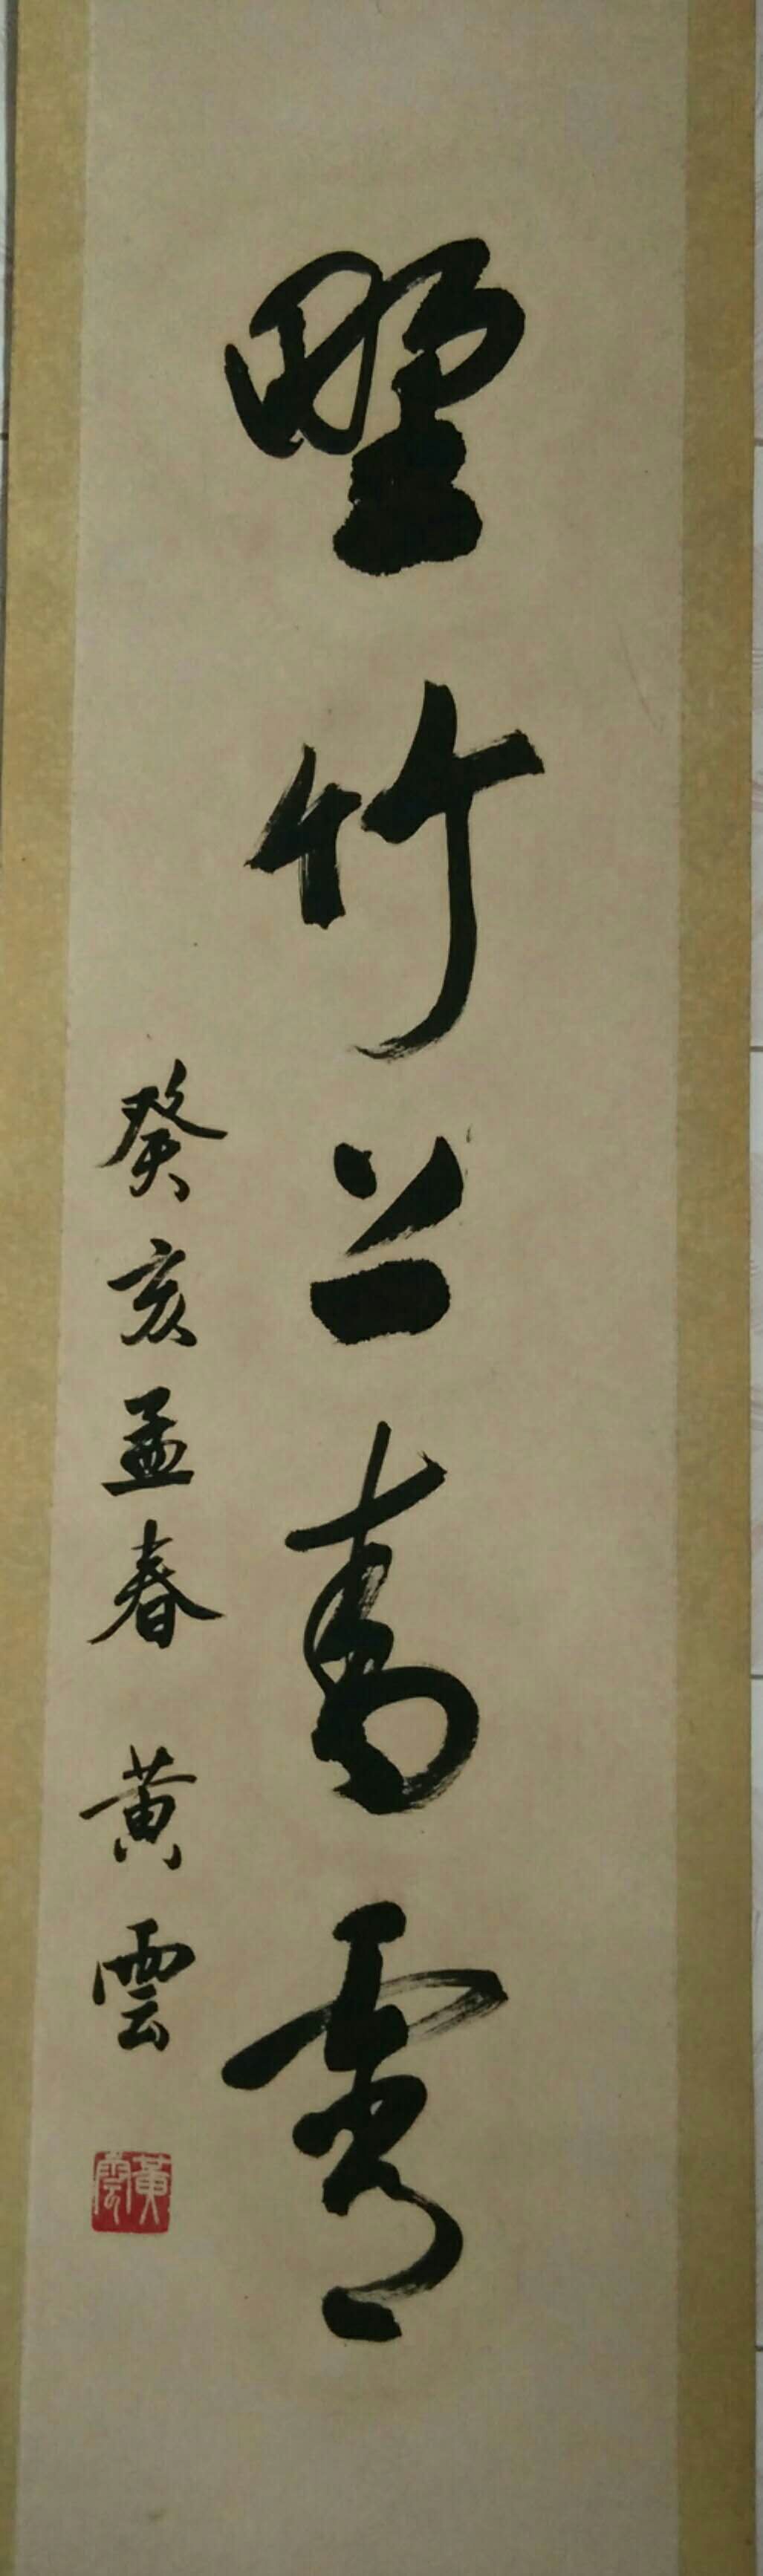 野竹上青霄
癸亥孟春 黄雲
黃雲